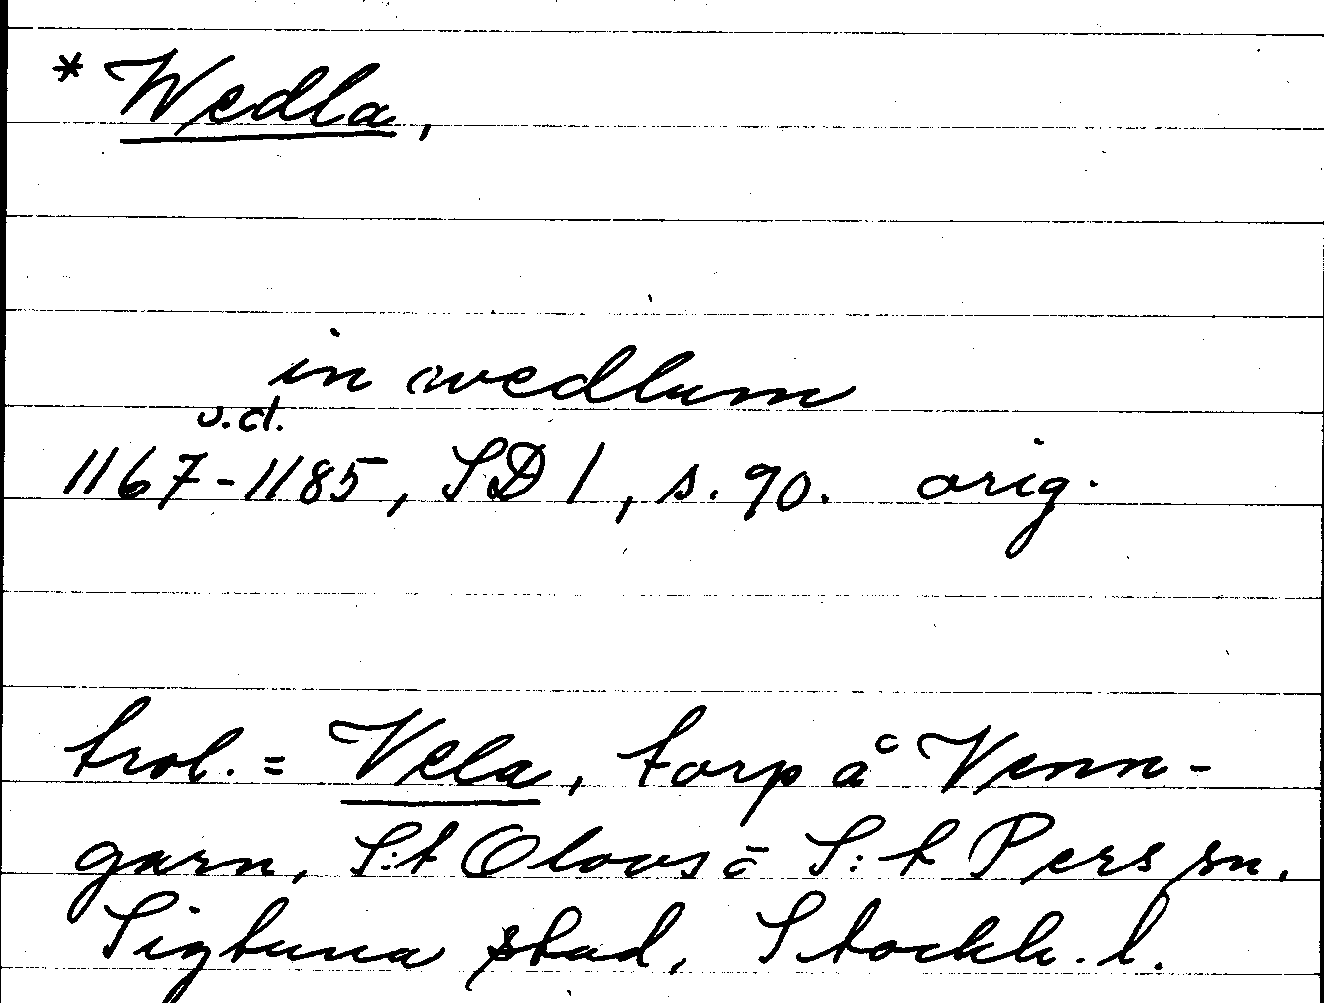 * Wedla,
in wedlum
u.d.
1167-1185, SD 1, s. 90. orig.
trol. = Vela, torp å Venn-
garn, S:t Olovs o S:t Pers sn.
Sigtuna stad, Stockh. l.